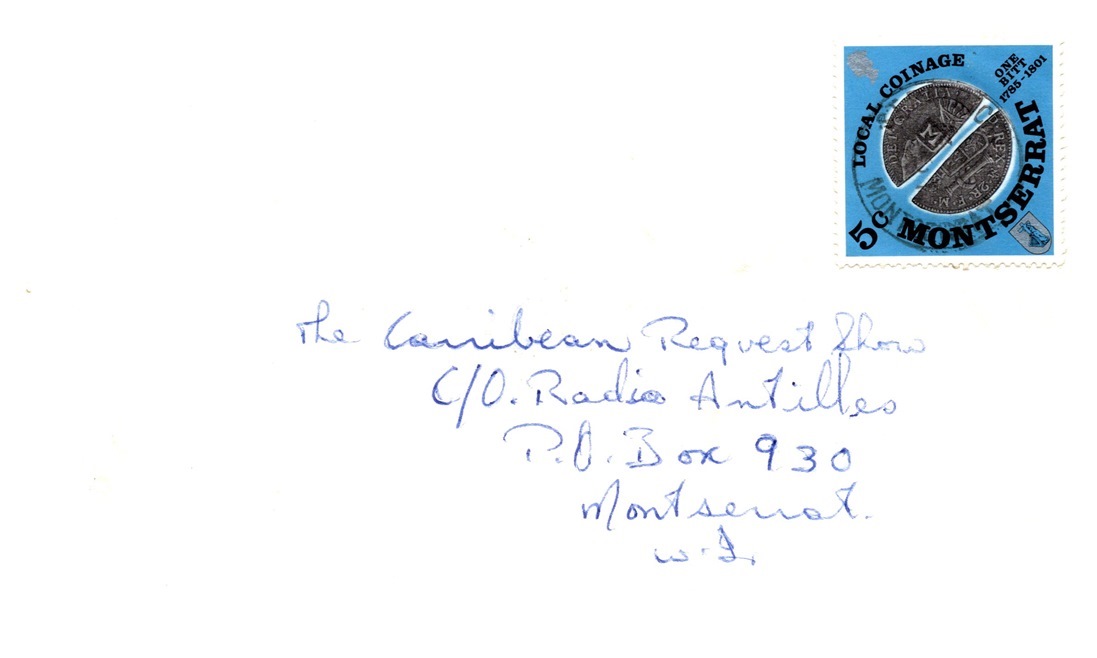 LOCAL COINAGE
ONE
BITT
1785-1801
DEI GRATIA
REX
M
2R·F·M·
5c MONTSERRAT
MONTSERRAT
The Carribean Request Show
C/O. Radio Antilles
P.O. Box 930
Montserrat.
W.I.